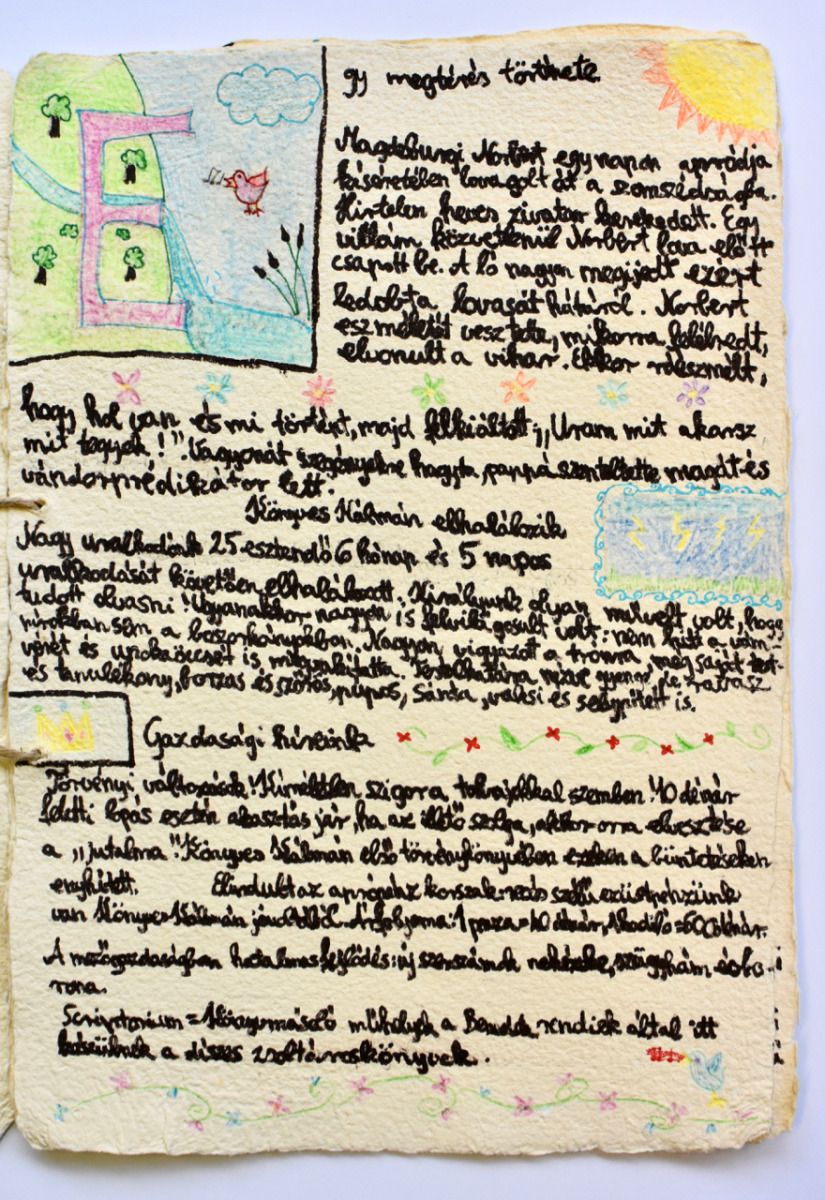 Egy megtérés története.
Magdeburgi Norbert egy napon apródja
kíséretében lovagolt át a szomszédságba.
Hirtelen heves zivatar kerekedett. Egy
villám közvetlenül Norbert lova előtt
csapott be. A ló nagyon megijedt ezért
ledobta lovasát hátáról. Norbert
eszméletét vesztette, mikorra felébredt,
elvonult a vihar. Ekkor ráeszmélt,
hogy hol van és mi történt, majd felkiáltott: ,,Uram mit akarsz
mit tegyek!". Vagyonát szegényekre hagyta, pappá szenteltette magát és
vándorprédikátor lett.
Könyves Kálmán elhalálozik
Nagy uralkodónk 25 esztendő 6 hónap és 5 napos
uralkodását követően elhalálozott. Királyunk olyan művelt volt, hogy
tudott olvasni! Ugyanakkor nagyon is felvilágosult volt: nem hitt a vám-
pírokban sem a boszorkányokban. Nagyon vigyázott a trónra, még saját test-
vérét és unokaöccsét is megvakíttatta. Testalkatára nézve gyenge, de ravasz
és tanulékony, borzas és szőrös, púpos, sánta, vaksi és selypített is.
Gazdasági híreink
Törvényi változások! Kíméletlen szigor a tolvajokkal szemben! 10 dénár
feletti lopás esetén akasztás jár, ha az illető szolga, akkor orra elvesztése
a ,,jutalma". Könyves Kálmán első törvénykönyvében ezeken a büntetéseken
enyhített. Elindult az aprópénz korszak: szélű ezüstpénzünk
van Könyves Kálmán jóvoltából. Árfolyama: 1 =10 dénár,
A mezőgazdaságban hatalmas fejlődés: új szerszámok szügyhám és bo-
rona.
Scriptorium = Könyvmásoló műhelyek a Bencés rendiek által itt
készülnek a díszes zsoltároskönyvek.